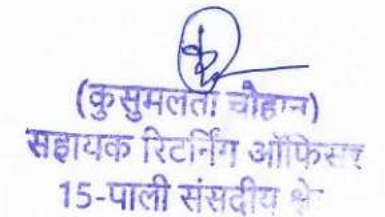 (कुसुमलता चौहान)
सहायक रिटर्निंग ऑफिसर
15-पाली संसदीय